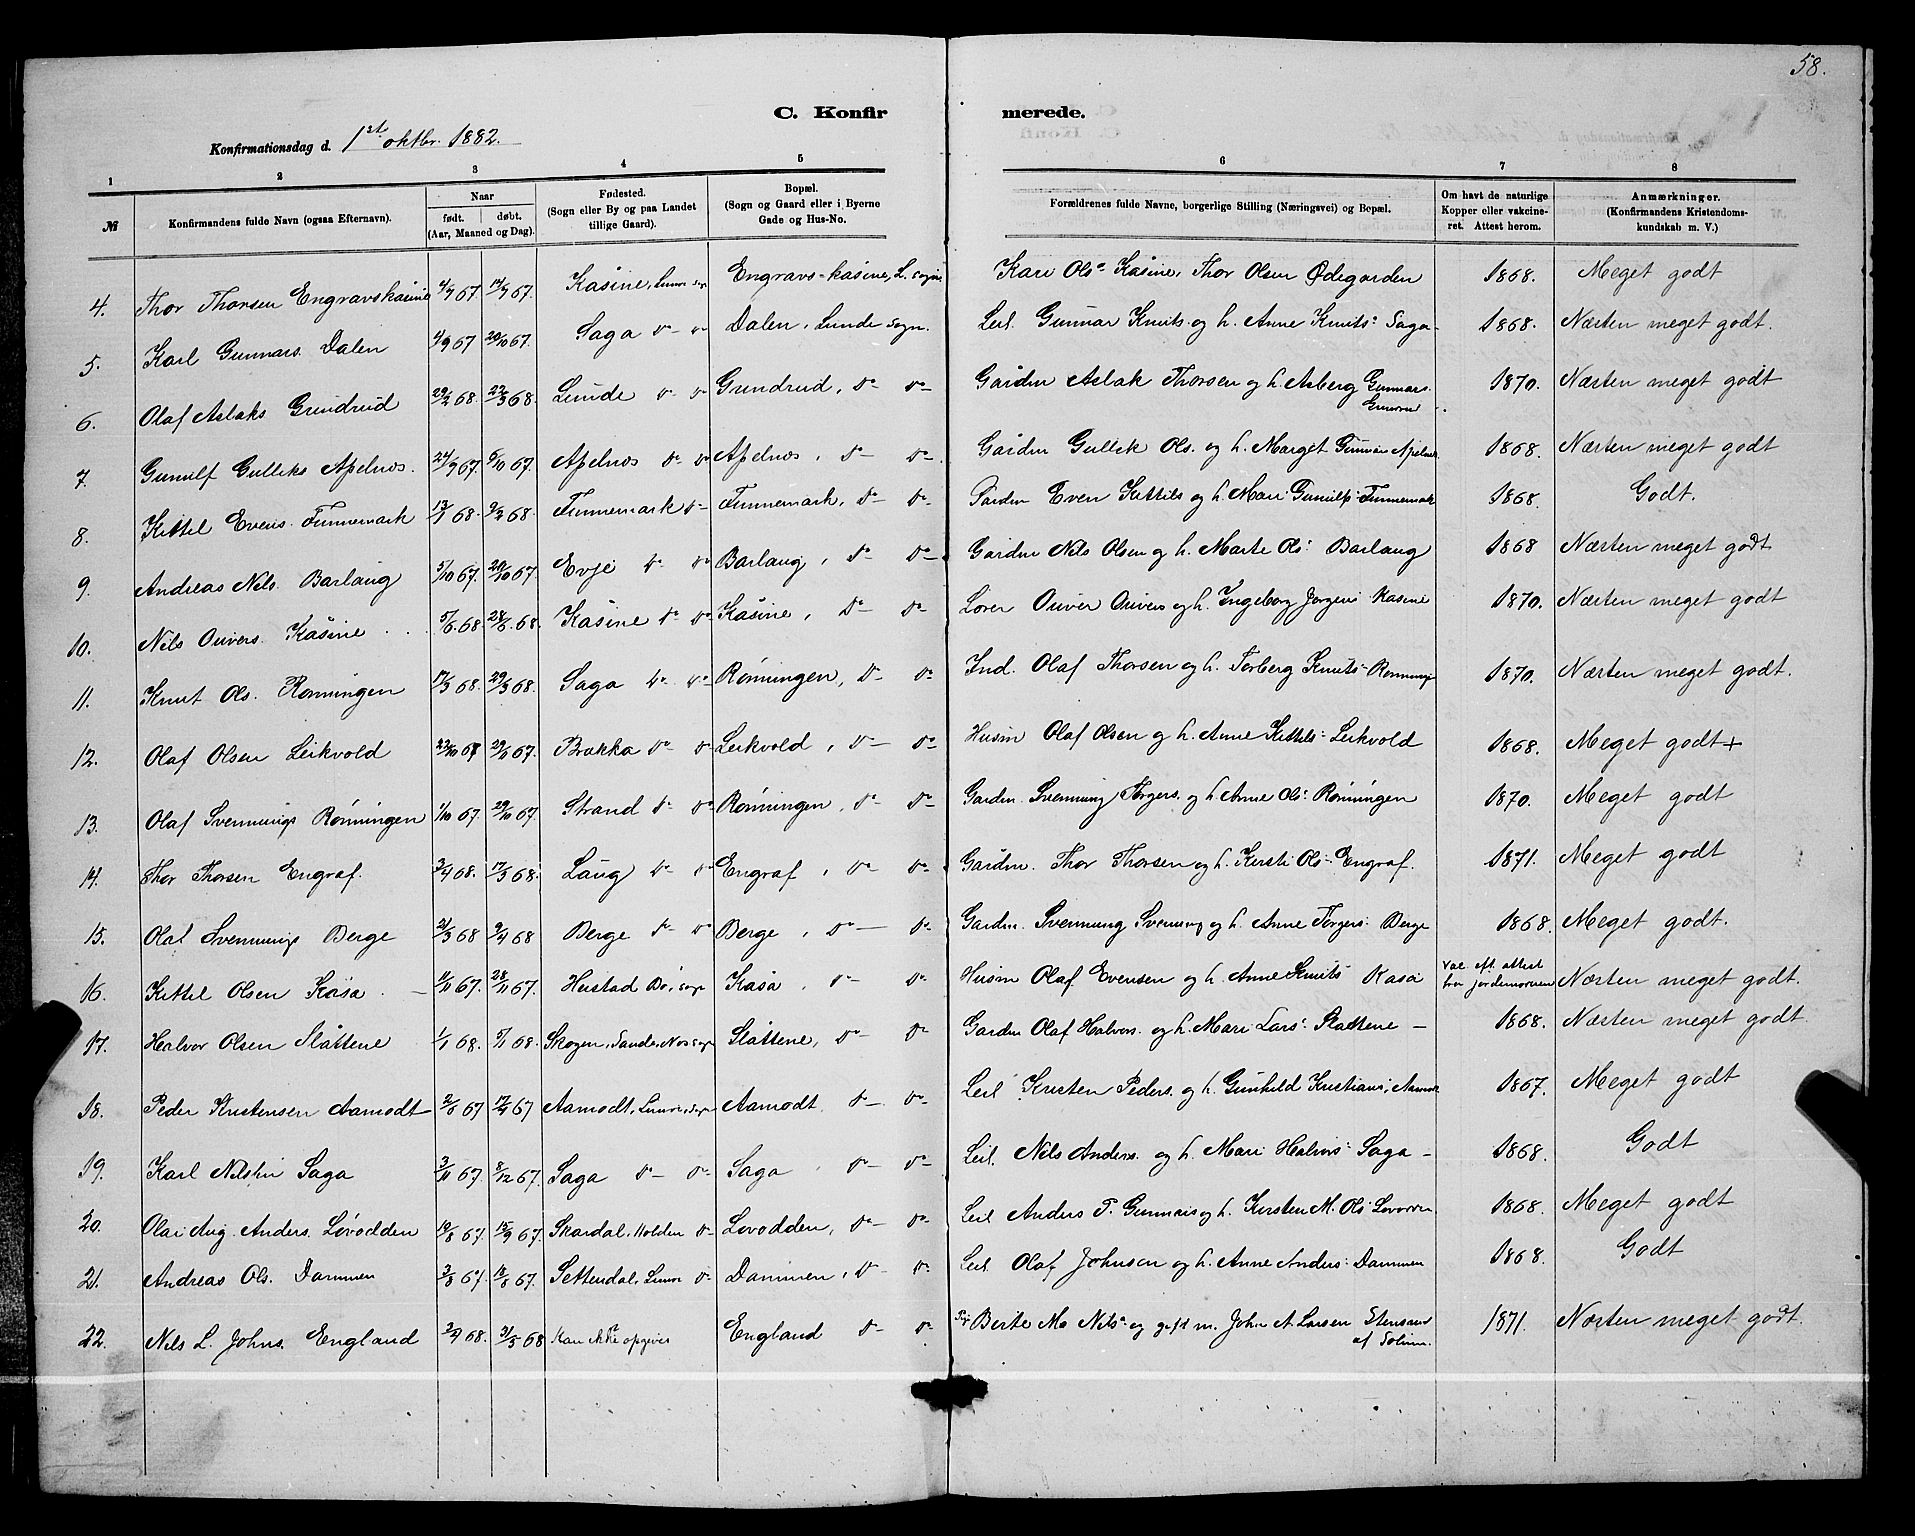 58.
C. Konfirmerede.
Konfirmationsdag d. 1st oktbr. 1882.
1 2 3 4 5 6 7 8
№ Konfirmandens fulde Navn (ogsaa Efternavn). Naar født. døbt. (Aar, Maaned og Dag). Fødested. (Sogn eller By og paa Landet tillige Gaard). Bopæl. (Sogn og Gaard eller i Byerne Gade og Hus-No. Forældrenes fulde Navne, borgerlige Stilling (Næringsvei) og Bopæl. Om havt de naturlige Kopper eller vakcineret. Attest herom. Anmærkninger. (Konfirmandens Kristendomskundskab m. V.)
4. Thor Thorsen Engravskåsine 4/9 67. 17/9 67. Kåsine, Lunde sogn Engravs-kåsine, L. sogn Kari Olsn Kåsine, Thor Olsen Ødegården 1868. Meget godt
5. Karl Gunnars. Dalen 4/9 67 20/10 67. Saga do do Dalen, Lunde sogn. Leil. Gunnar Knuts. og h. Anne Knuts: Saga 1868. Næsten meget godt.
6. Olaf Aslaks Grudrud 29/2 68. 22/3 68. Lunde do do Grudrud, do do Gårdm Aslak Thorsen og h. Asberg Gunnars. 1870. Næsten meget godt
7. Gunulf Gulleks Apelnæs. 24/9 67. 6/10 67. Apelnæs do do Apelnæs, do do Gårdm Gullek Ols. og h. Marget 1868. Næsten meget godt
8. Kittel Evens. Funnemark 13/1 68. 9/2 68. Funnemark do Funnemark, do do Even Kittils og h. Mari Gunulfs: Funnemark 1868. Godt.
9. Andreas Nils. Barlaug 5/10 67. 20/10 67. Evje do do Barlaug, do do Gårdm Nils Olsen og h. Marte Ols: Barlaug 1868 Næsten meget godt
10. Nils Ouvers. Kåsine 5/6 68. 28/6 68. Kåsine do do Kåsine, do do Ouver Ouvers og h. Ingeborg Jørgens Kasine 1870. Næsten meget godt
11. Knut Ols. Rønningen 17/3 68. 29/3 68. Saga do do Rønningen, do do Ind. Olaf Thorsen og h. Torberg Knuts- 1870. Næsten meget godt.
12. Olaf Olsen Leikvold 22/10 67 29/11 67. Bakka do do Leikvold, do do Husm Olaf Olsen og h. Anne Kittils: Leikvold 1868. Meget godt+
13. Olaf Svennungs Rønningen 1/10 67. 29/10 67. Strand do do Rønningen, do do Gårdm. Svennung Torgers. og h. Anne Ols: Rønningen 1870. Meget godt
14. Thor Thorsen Engraf. 3/4 68. 17/5 68. Laug do do Engraf, do do Gårdm. Thor Thorsen og h. Kersti Ols: Engraf. 1871. Meget godt
15. Olaf Svennungs Berge 2/3 68 9/4 68 Berge do do Berge, do do Gårdm. Svennung Svennungs og h. Anne Torgers: Berge 1868. Meget godt.
16. Kittil Olsen Kåsa. 11/11 67. 28/11 67. Heistad Bø, sogn Kåsa, do do Husm Olaf Evensen og h. Anne Knuts Kåsa Vac. eft. attest fra jordemoren Næsten meget godt.
17. Halvor Olsen Slåttene 1/1 68. 5/1 68. Skogen, Sande, sogn Slåttene, do do Gårdm Olaf Halvors. og h. Mari Lars: Slåttene 1868. Næsten meget godt
18. Peder Kristensen Aamodt 2/6 67 17/4 67 Aamodt, Lunde, sogn Aamodt, do do Leil Kristen Peders. og h. Gunhild Kristians: 1867. Meget godt
19. Karl Nilsen Saga 3/11 67. 8/12 67. Saga do do Saga, do do Leil. Nils Anders. og h. Mari Halvors: Saga 1868. Godt
20. Olai Aug. Anders. Løvodden 10/8 67. 15/9 67. Skardal, Holden do Løvodden, do do Leil Anders P. Gunnars og h. Kirsten M. Ols: 1868. Meget godt
21. Andreas Ols. Dammen 3/8 67. 18/8 67. Settendal, Lunde do Dammen, do do Leil. Olaf Johnsen og h. Anne Anders: Dammen 1868. Godt
22. Nils L. Johns. England 3/4 68. 31/5 68 Kan ikke opgives England do do Berte M. Nils: og gift m. John A. Larsen af Solum. 1871. Næsten meget godt.